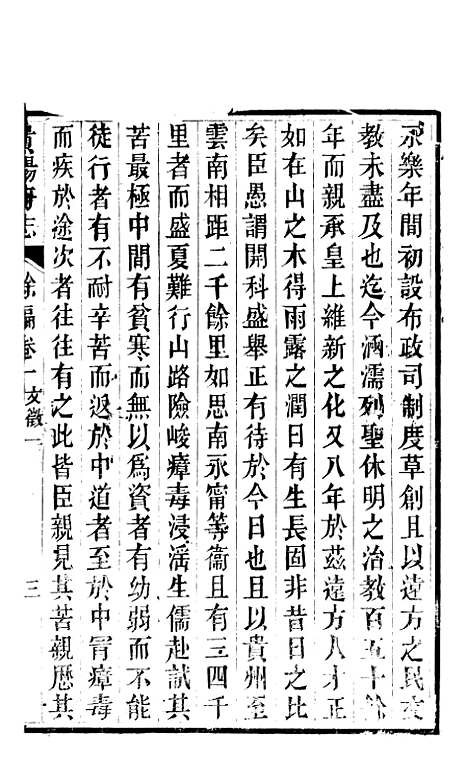 永樂年間初設布政司制度草創且以遠方之民文
教未盡及也迄今涵濡列聖休明之治教百五十餘
年而親承皇上維新之化又八年於茲遠方人才正
如在山之木得雨露之潤日有生長固非昔日之比
矣臣愚謂開科盛舉正有待於今日也且以貴州至
雲南相距二千餘里如思南永甯等衞且有三四千
里者而盛夏難行山路險峻瘴毒浸淫生儒赴試其
苦最極中間有貧寒而無以爲資者有幼弱而不能
徒行者有不耐辛苦而退於中道者至於中冐瘴毒
而疾於途次者往往有之此皆臣親見其苦親歷其
貴陽府志 餘編卷一 文徵一 三